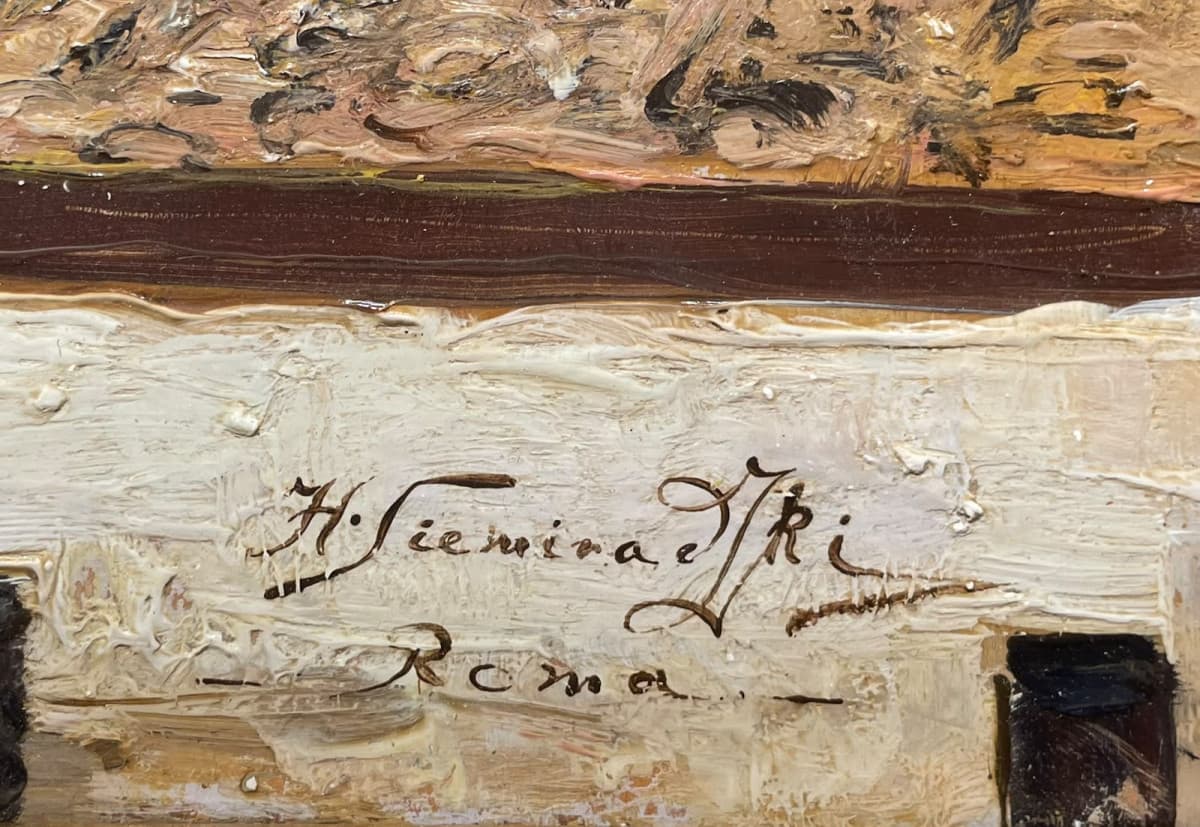 H. Siemiradzki
— Roma —